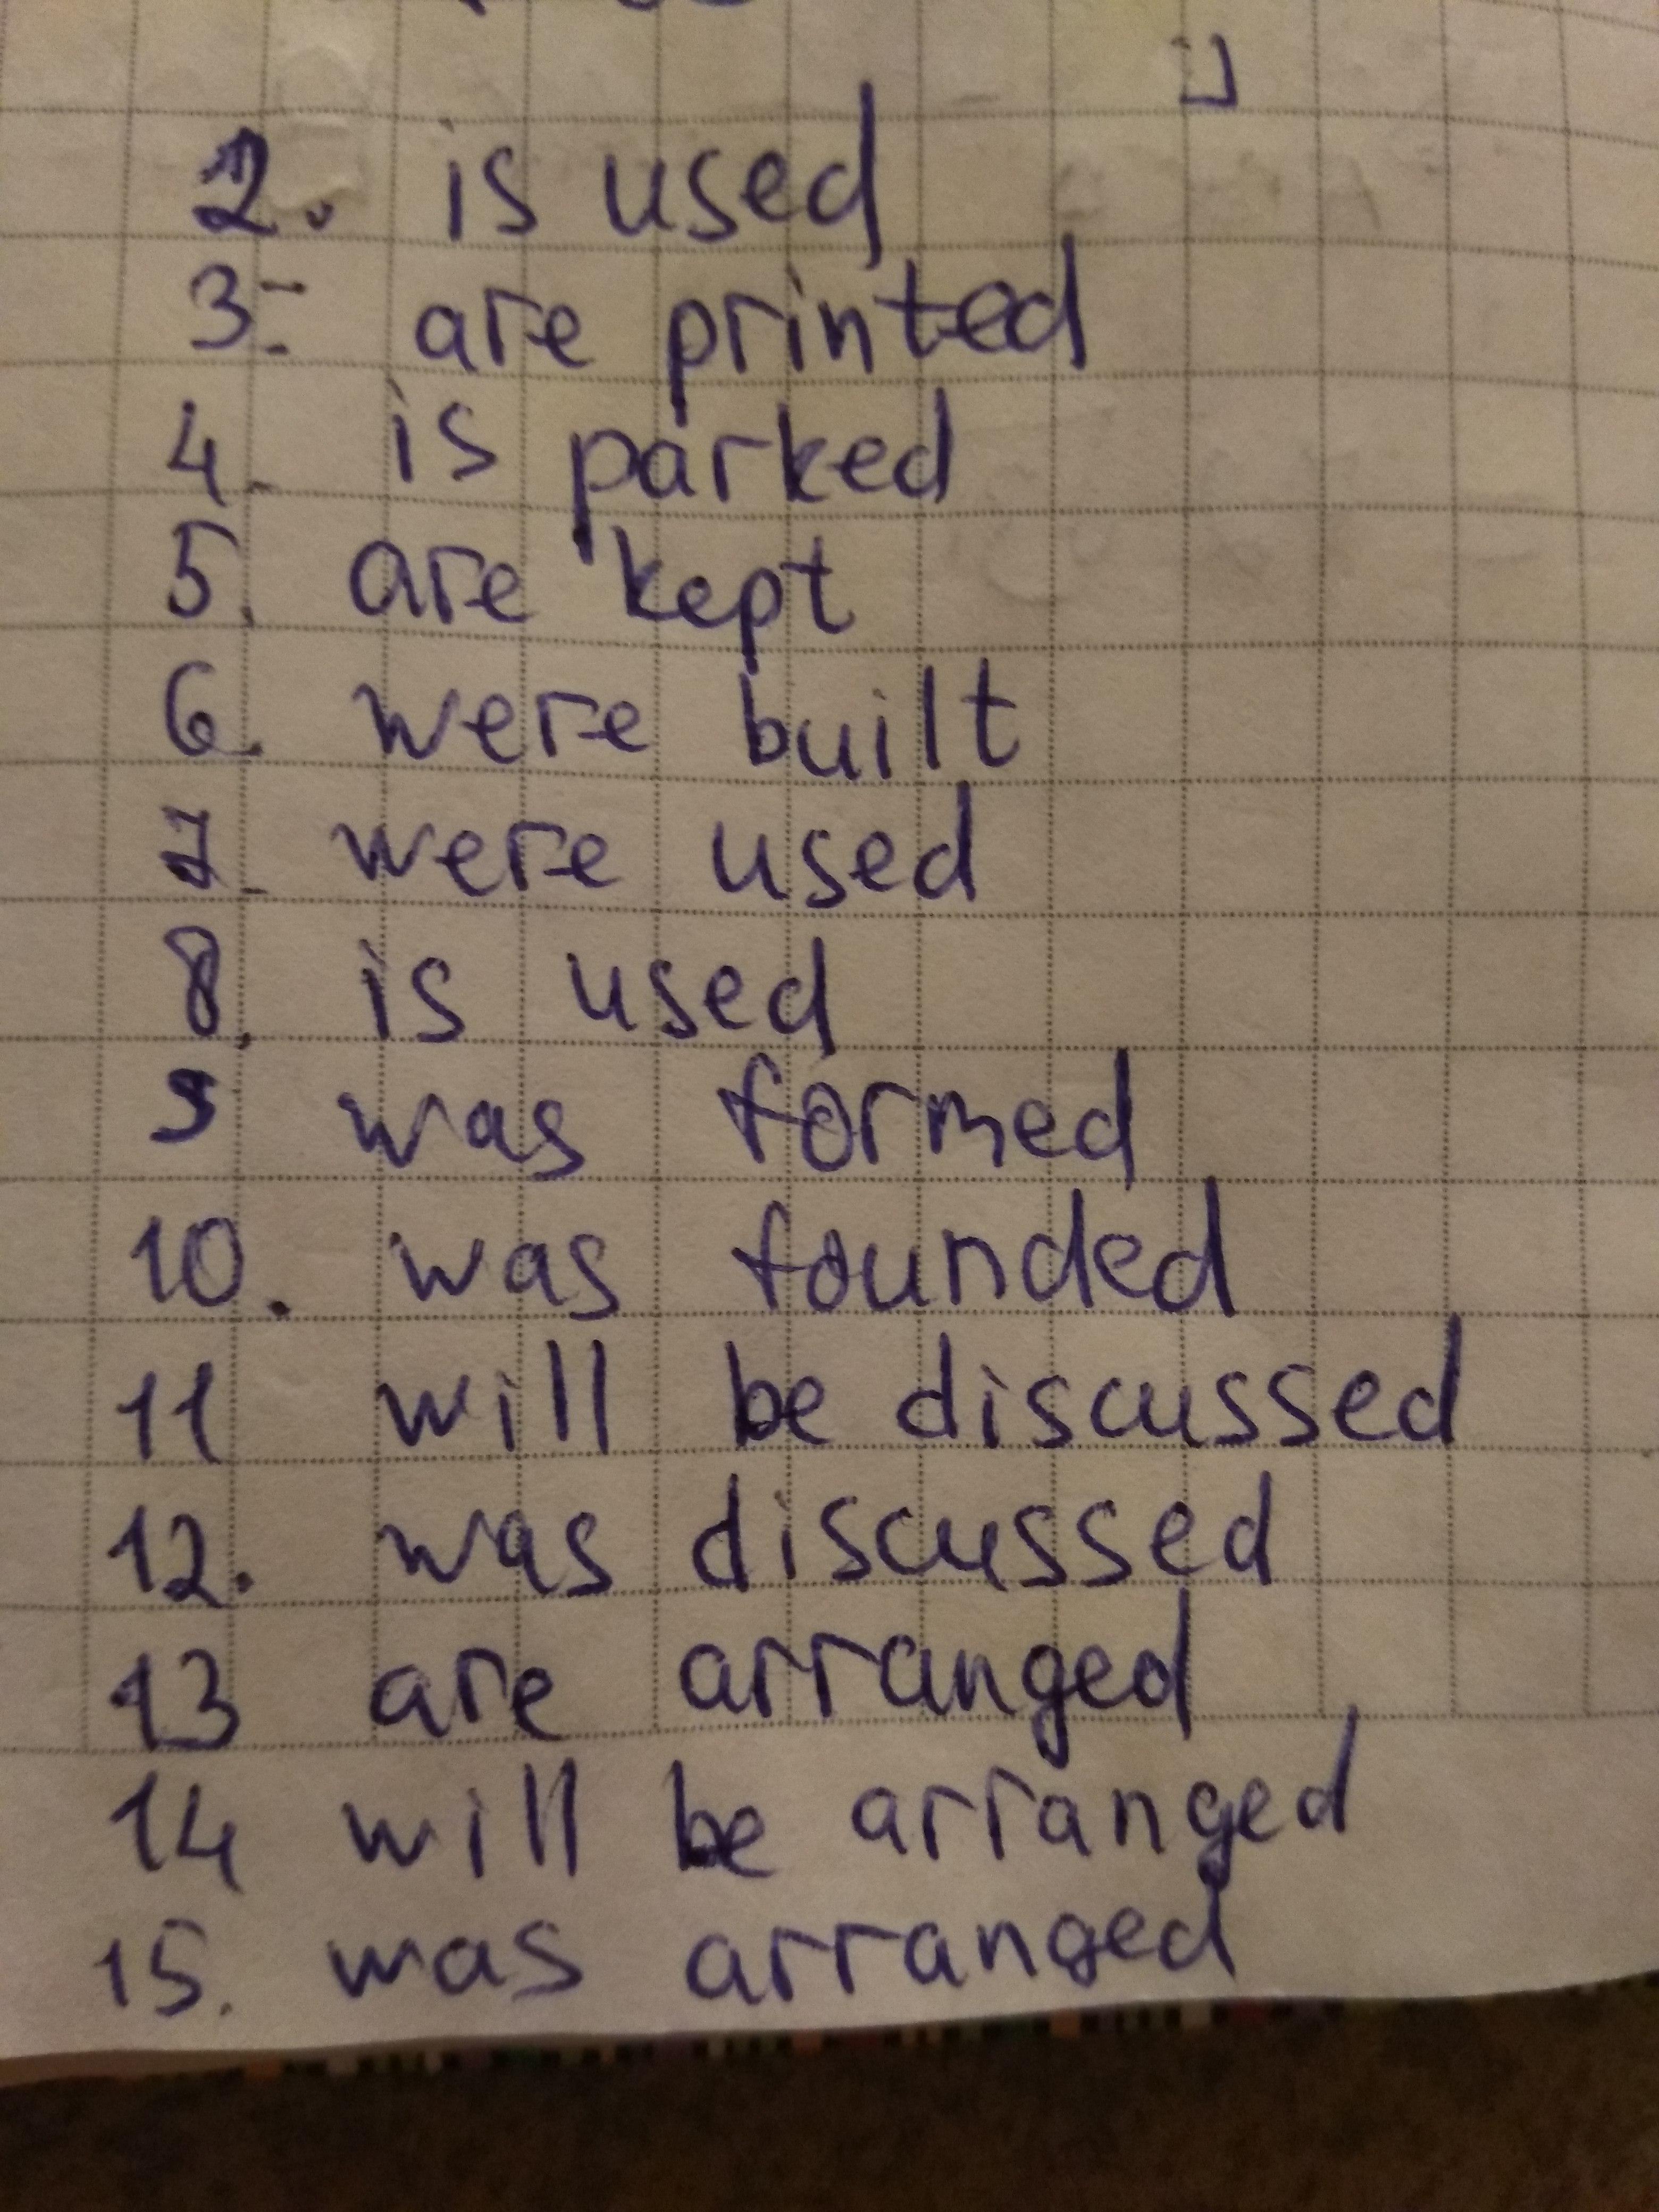 2. is used
3. are printed
4. is parked
5. are kept
6. were built
7. were used
8. is used
9 was formed
10. was founded
11 will be discussed
12. was discussed
13 are arranged
14 will be arranged
15. was arranged